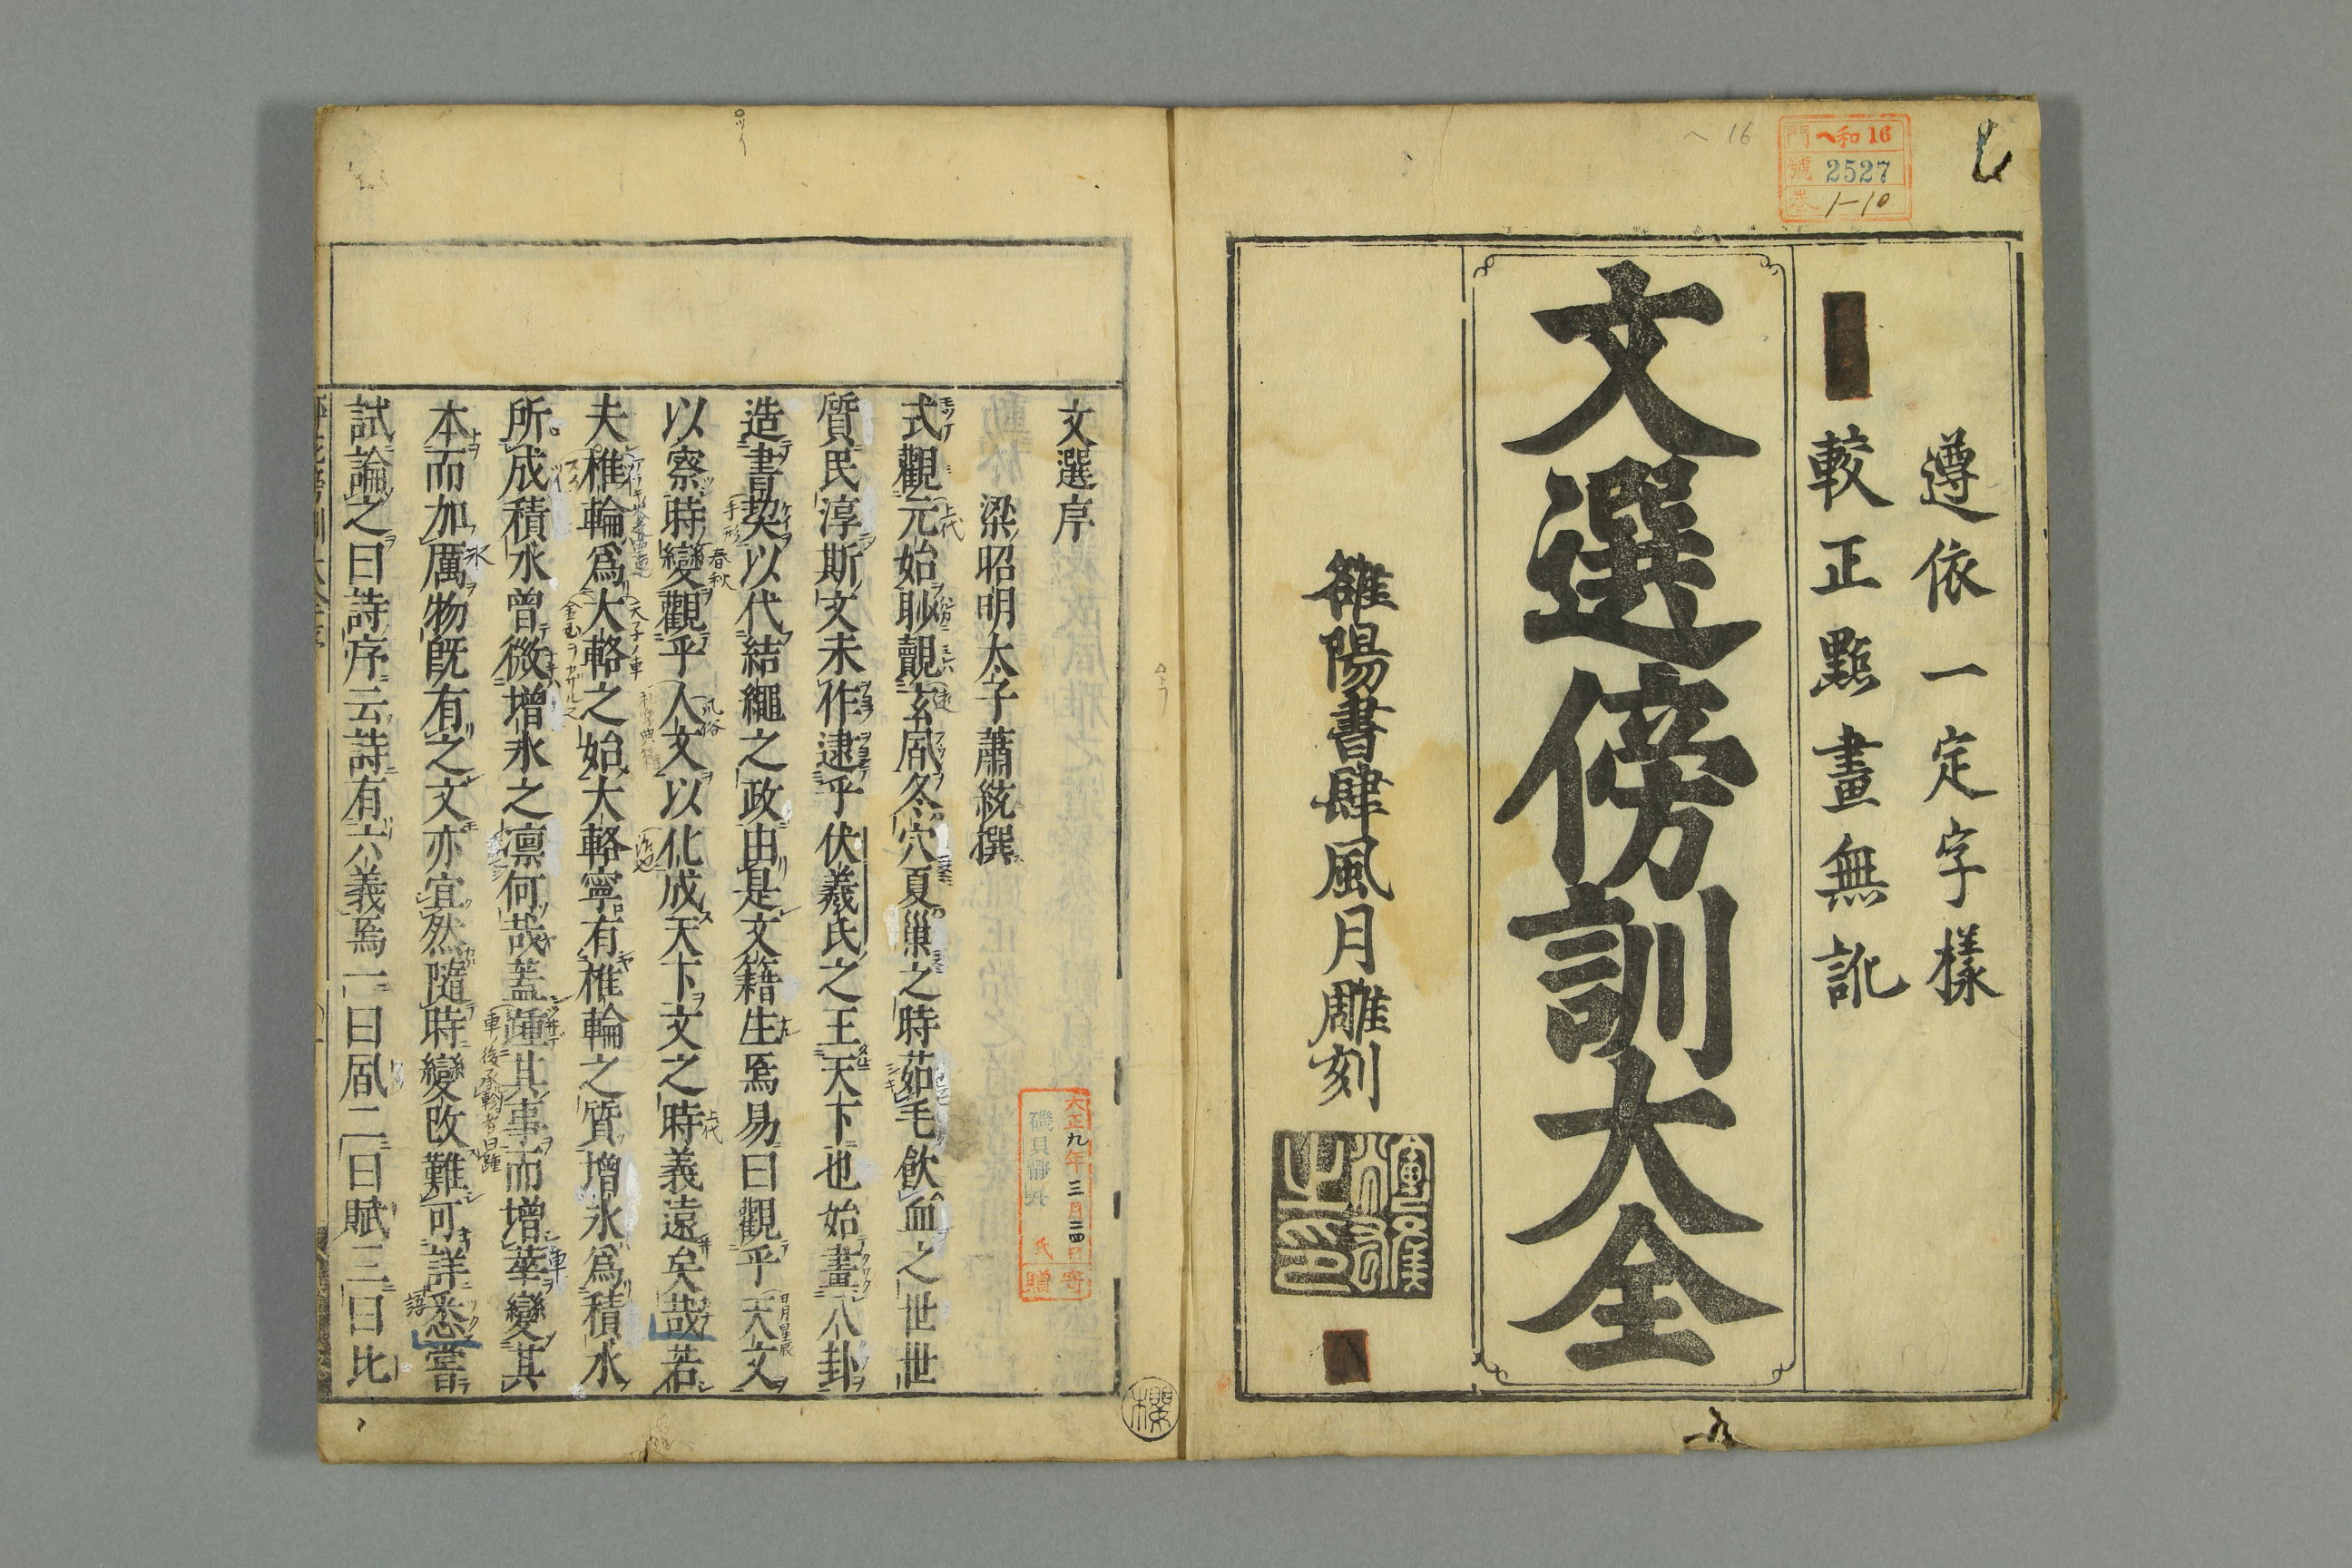 門 ヘ和 16
號 2527
巻 1-10
16
遵依一定字樣
較正點畫無訛
文選傍訓大全
雒陽書肆風月雕刻
文選序
梁昭明太子蕭統撰
式觀元始眇覿玄風冬穴夏巢之時茹毛飲血之世世
質民淳斯文未作逮乎伏羲氏之王天下也始畫八卦
造書契以代結繩之政由是文籍生焉易曰觀乎天文
以察時變觀乎人文以化成天下文之時義遠矣哉若
夫椎輪爲大輅之始大輅寧有椎輪之質增氷爲積水
所成積水曾微增氷之凛何哉蓋踵其事而增華變其
本而加厲物既有之文亦宜然隨時變改難可詳悉嘗
試論之曰詩序云詩有六義焉一曰風二曰賦三曰比
大正九年三月二四日寄
氏贈
櫻